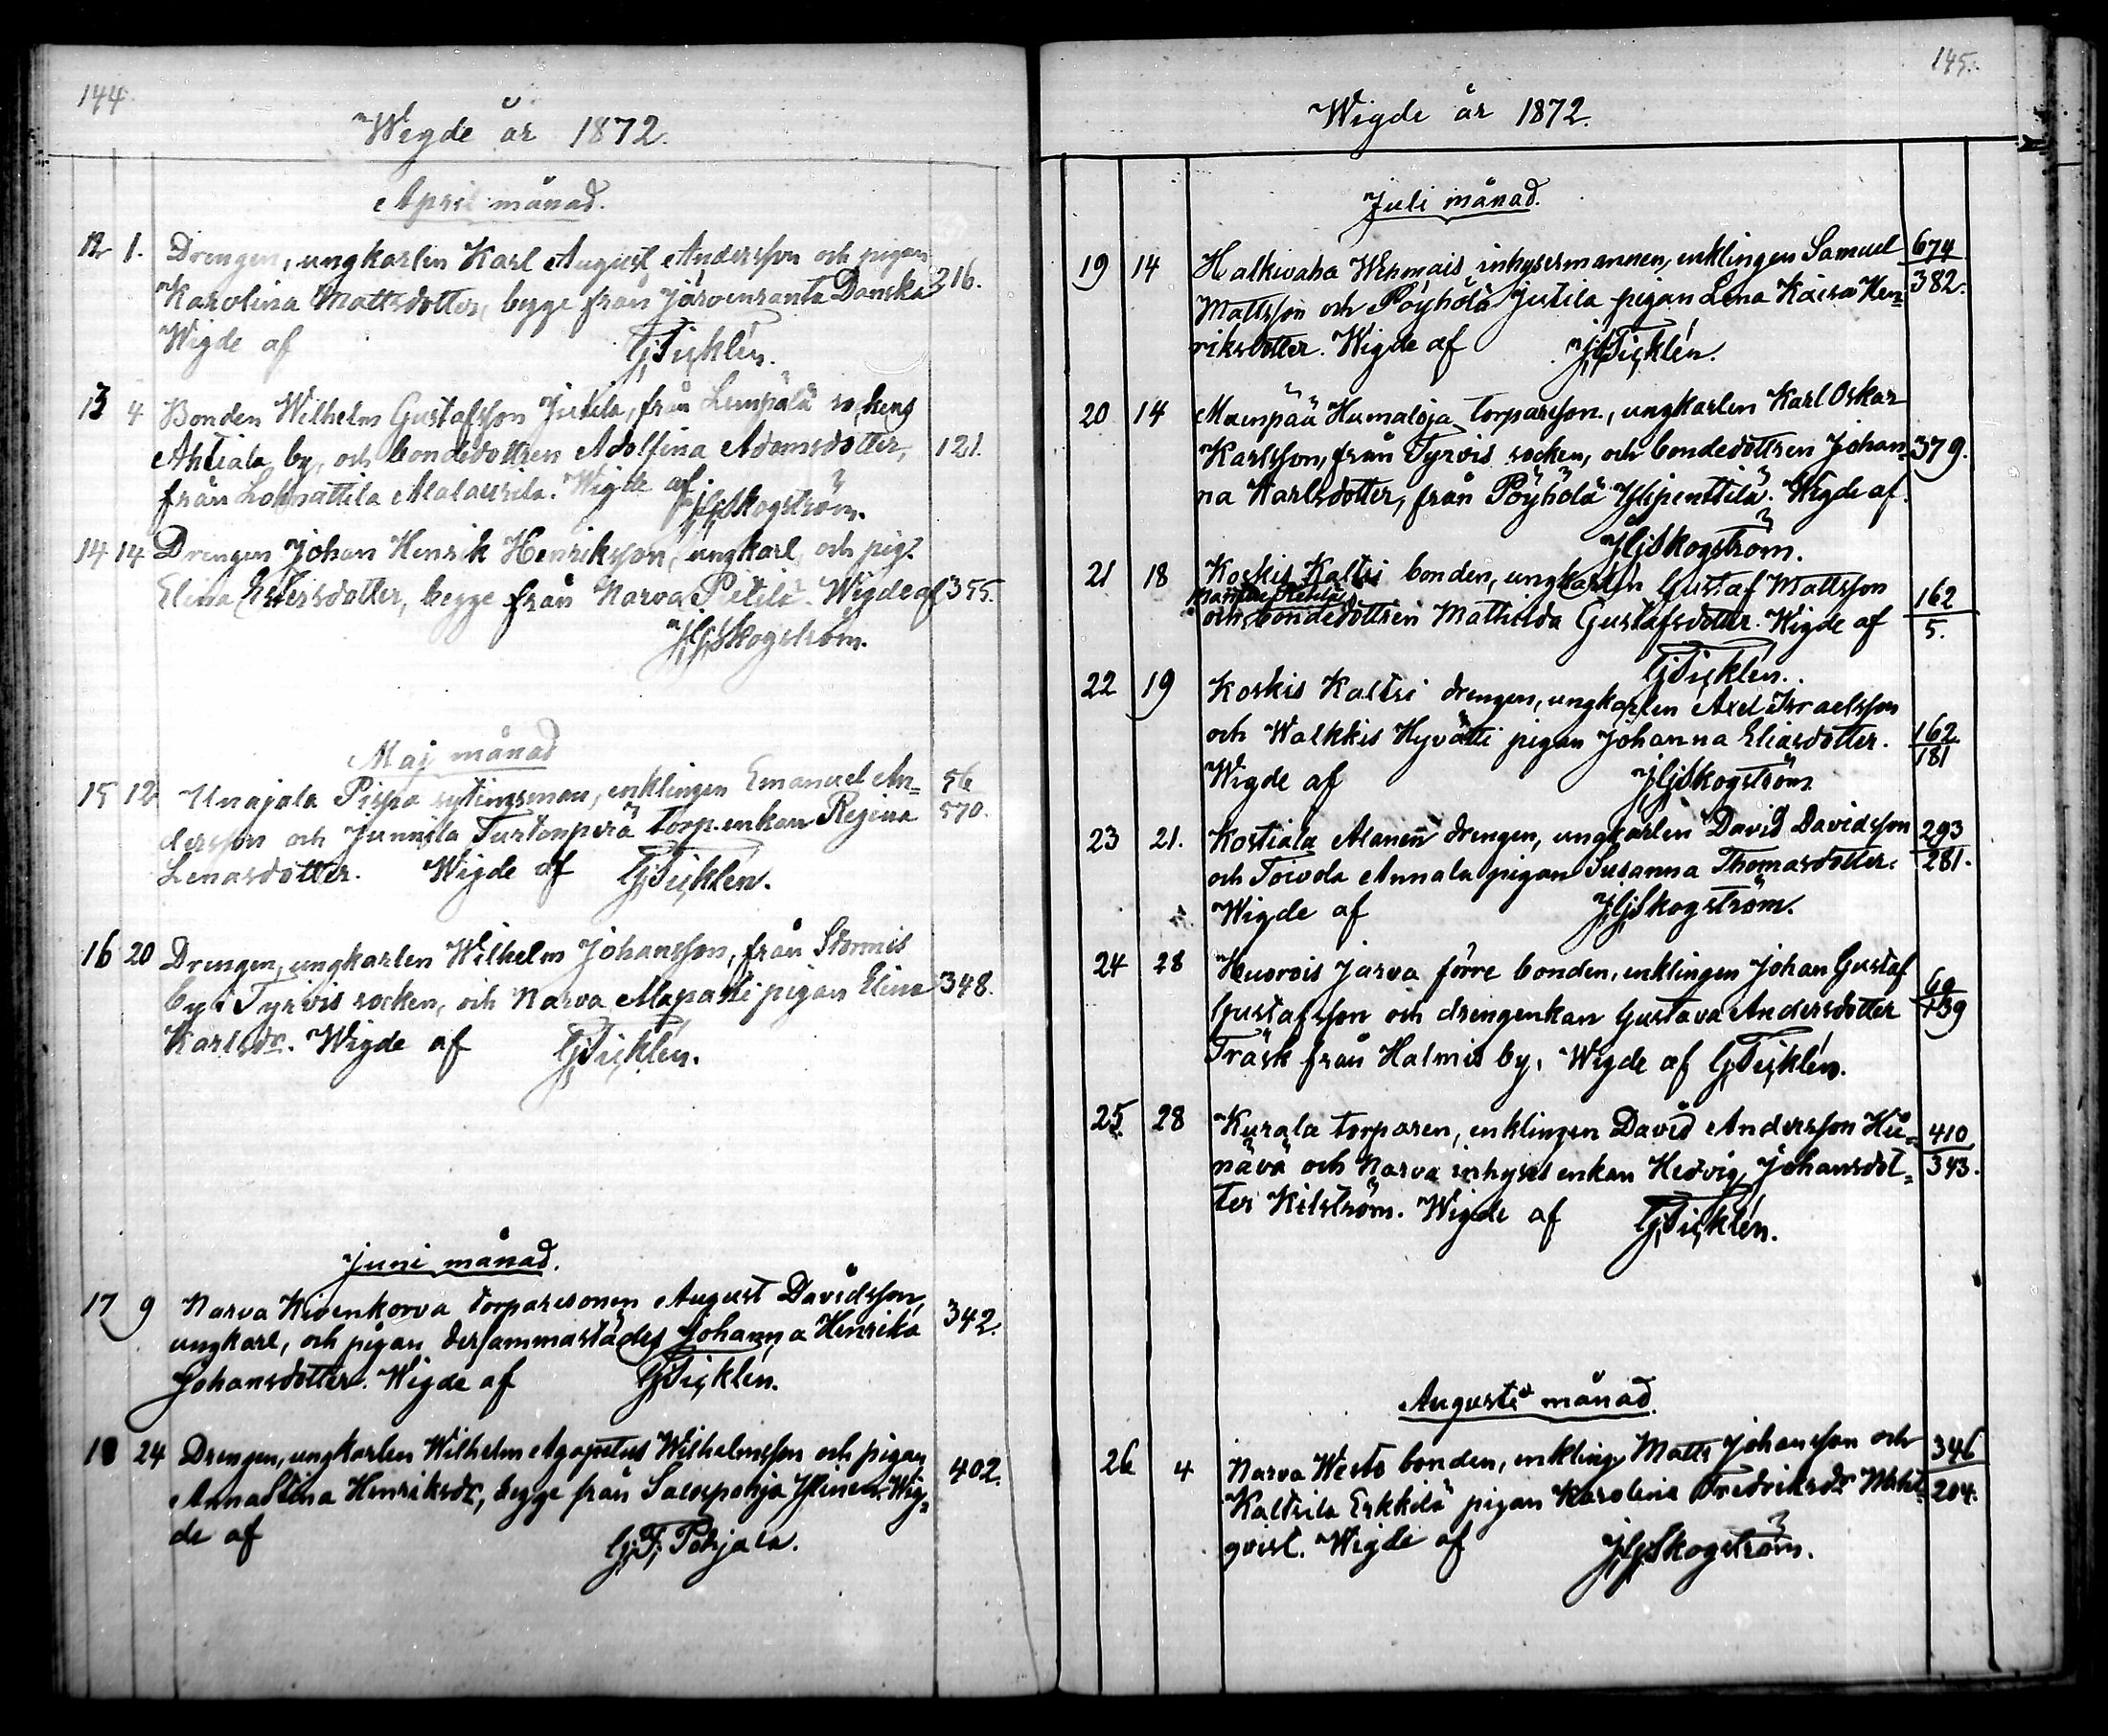 144.
Wigde år 1872.
April månad.
12 1. Drengen, ungkarlen Karl August Andersson och pigan 316.
Karolina Mattsdotter, begge från Järvenranta Danska
Wigde af GTicklén.
13 4 Bonden Wilhelm Gustafsson Jutila, från Lempälä sockens
Ahtiala by, och bondedottren Adolfina Adamsdotter, 121.
från Alalaurila. Wigde af
Skogström.
14 14 Drengen Johan Henrik Henriksson, ungkarl, och pig.
Elina dotter, begge från Narva Pietilä. Wigde af 355.
Skogström.
Maj månad
15 12 Unajala Pispa sytinesman, enklingen Emanuel An= 56
dersson och Junnila torp.enkan Regina 570.
Lenasdotter. Wigde af GTicklén.
16 20 Drengen, ungkarlen Wilhelm Johansson, från Stormis
by i Tyrvis socken, och Narva pigan Elina 348.
Karlsdr. Wigde af GTicklén.
Juni månad.
17 9 Narva Kivenkorva torparesonen August Davidsson, 342.
ungkarl, och pigan dersammastädes Johanna Henrika
Johansdotter. Wigde af GTicklén.
18 24 Drengen, ungkarlen Wilhelm Agapetus Wilhelmsson och pigan 402.
Anna Stina Henriksdr, begge från Salospohja Ylinen. Wig=
de af G. F. Pohjala.
145.
Wigde år 1872.
Juli månad.
19 14 Halkivaha Wehmais inhysesmannen, enklingen Samuel 674
Mattsson och Pöyhölä Jutila pigan Lena Kaisa Hen= 382.
riksdotter. Wigde af GTicklén.
20 14 Maenpää Humaloja torparson, ungkarlen Karl Oskar
Karlsson, från Tyrvis socken, och bondedottren Johan= 379.
na Karlsdotter, från Pöyhölä Ylipenttilä. Wigde af
Skogström.
21 18 Koskis Kaltsi bonden, ungkarlen Gustaf Mattsson
och bondedottren Mathilda Gustafsdotter. Wigde af 162
5.
GTicklén.
22 19 Koskis Kaltsi drengen, ungkarlen Axel Israelsson
och Walkkis Hyvätti pigan Johanna Eliasdotter. 162
181
Wigde af Skogström
23 21. Kostiala Alanen drengen, ungkarlen David Davidsson 293
och Toivola Annala pigan Susanna Thomasdotter. 281.
Wigde af Skogström.
24 28 Huovois Jarva förre bonden, enklingen Johan Gustaf
Gustafsson och drengenkan Gustava Andersdotter
Träsk från Halmis by. Wigde af GTicklén.
25 28 Kurala torparen, enklingen David Andersson Hii= 410
nävä och Narva inhyses enkan Hedvig Johansdot= 343.
ter Kilström. Wigde af GTicklén.
Augusti månad.
26 4 Narva Westo bonden, enkling Matts Johansson och 346
Kaltsila Erkkilä pigan Karolina Fredriksdr Wahl= 204.
qvist. Wigde af Skogström.